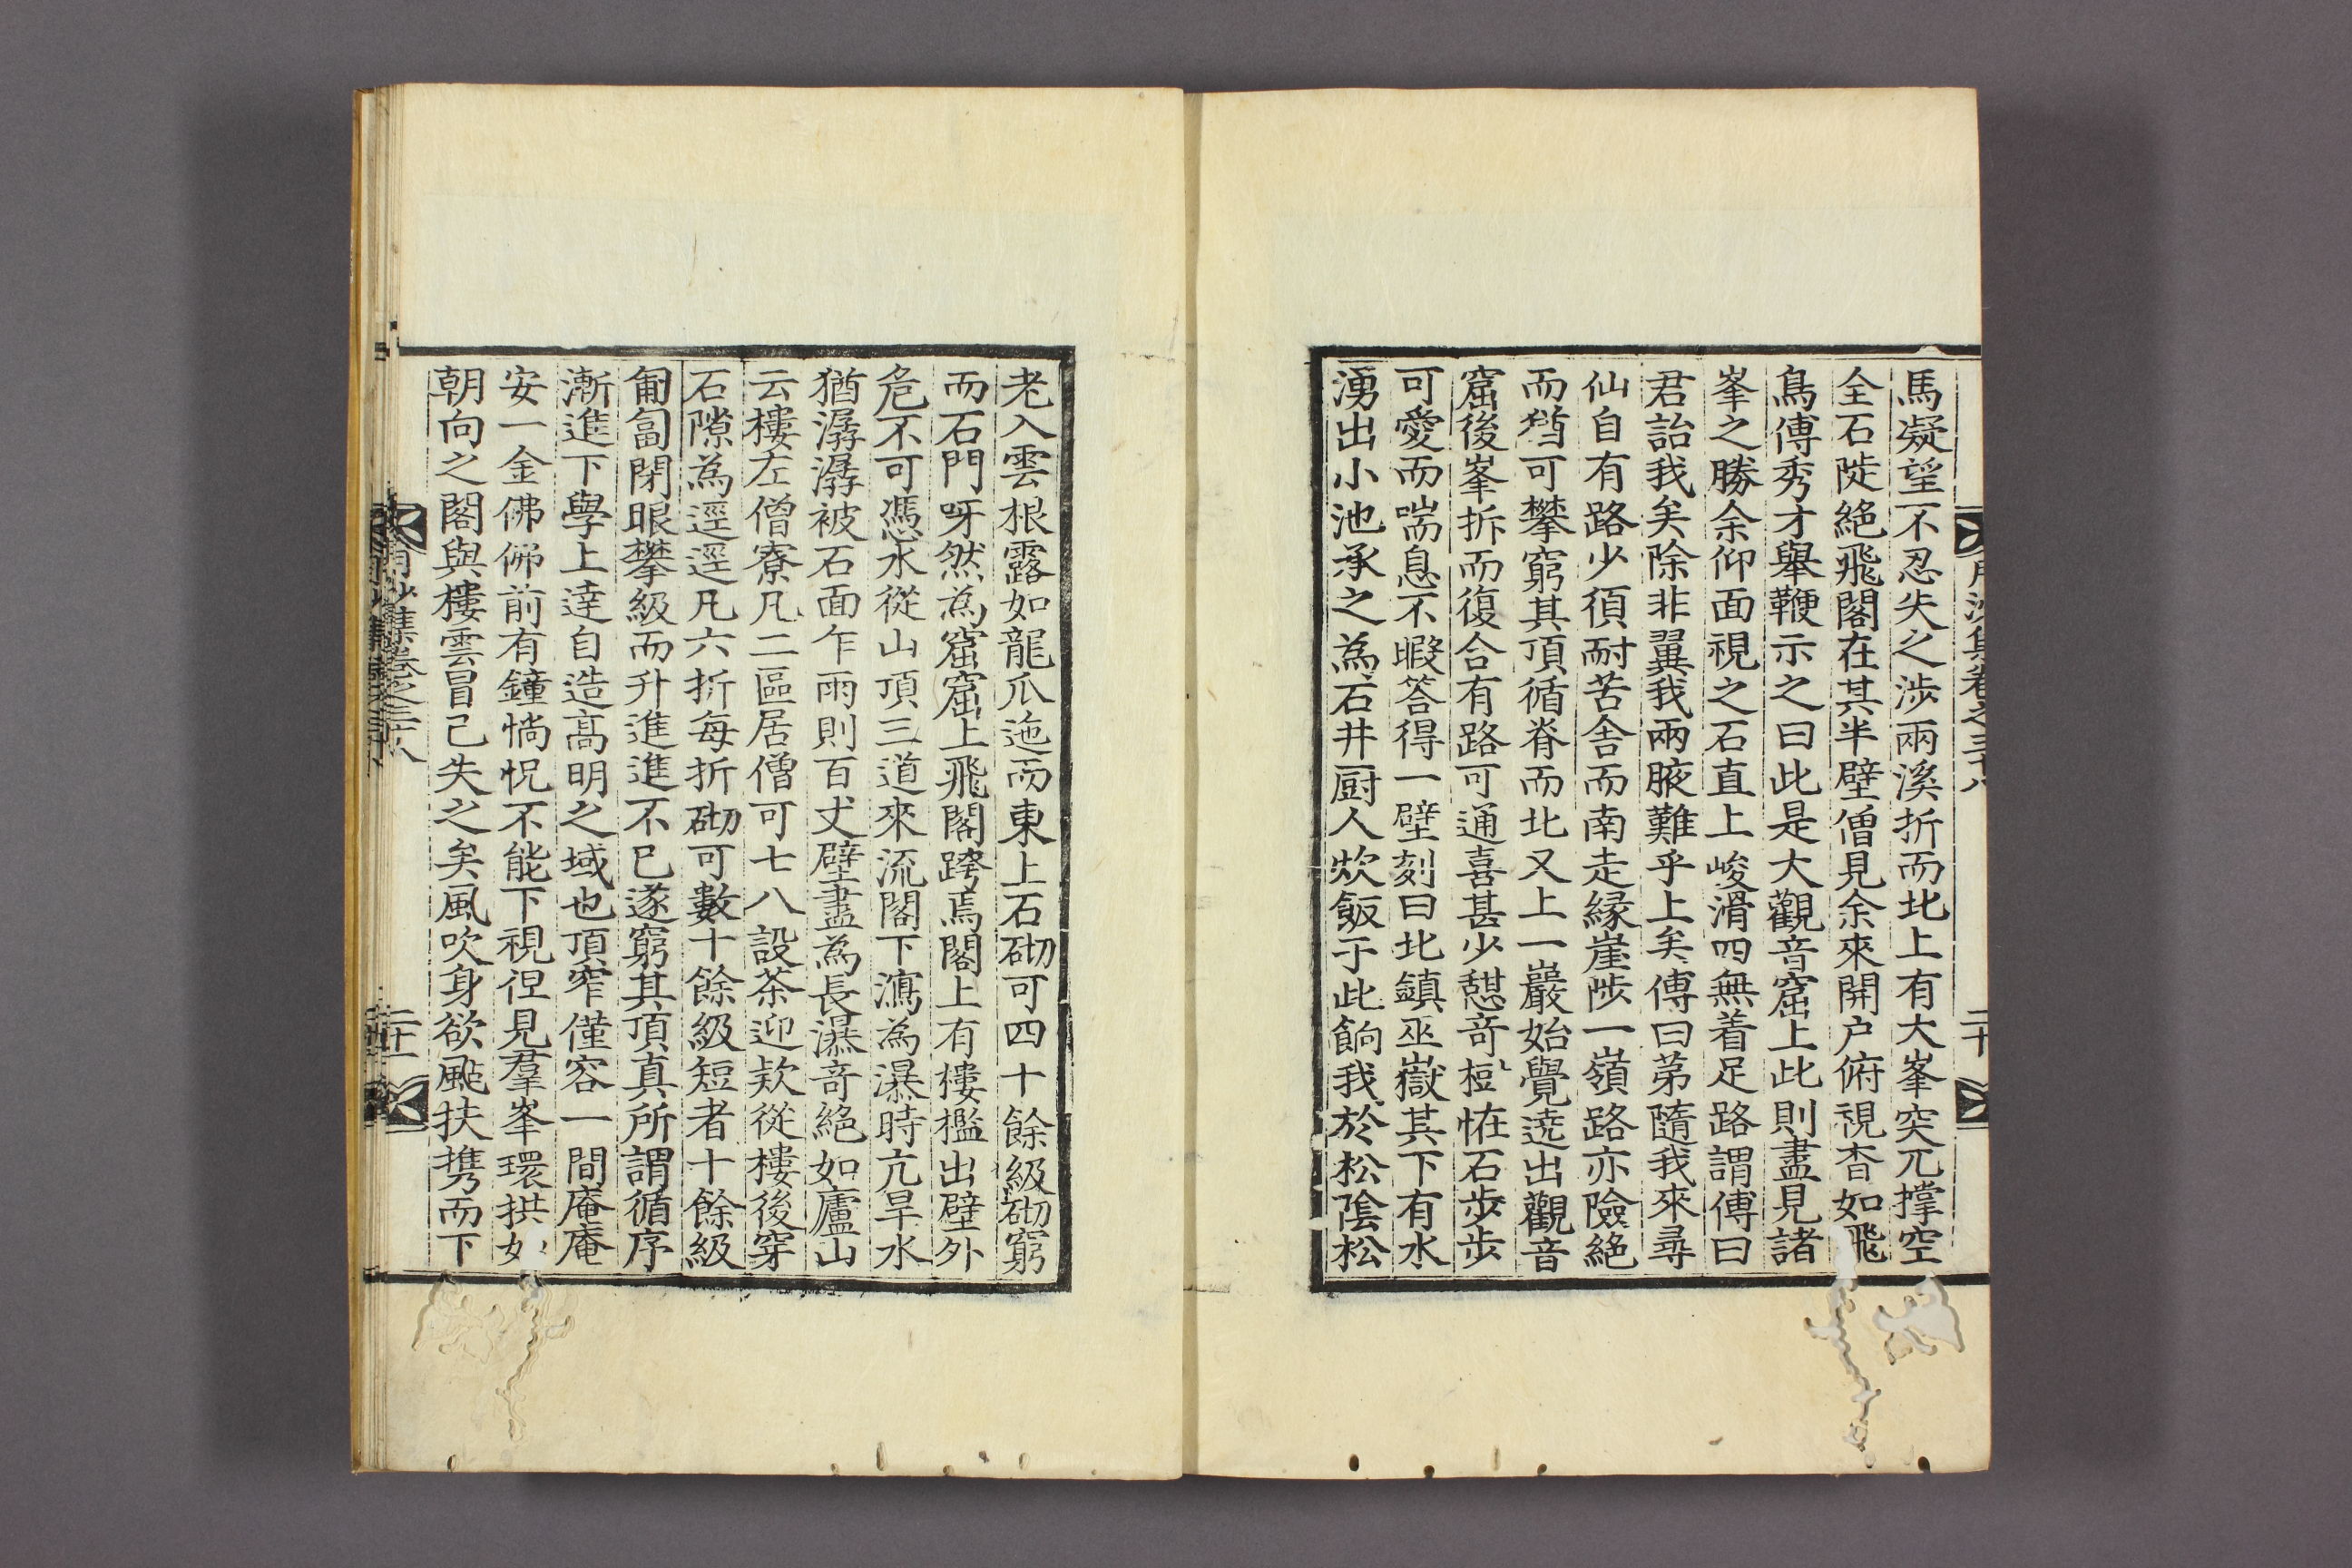 馬凝望不忍失之涉兩溪折而北上有大峯突兀撑空
全石陡絶飛閣在其半壁僧見余來開户俯視杳如飛
鳥傅秀才舉鞭示之曰此是大觀音窟上此則盡見諸
峯之勝余仰面視之石直上峻滑四無着足路謂傅曰
君詒我矣除非翼我兩腋難乎上矣傅曰苐隨我來尋
仙自有路少須耐苦舎而南走縁崖陟一嶺路亦險絶
而猶可攀窮其頂循脊而北又上一巖始覺遶出觀音
窟後峯拆而復合有路可通喜甚少憇竒樹恠石步步
可愛而喘息不暇答得一壁刻曰北鎮巫嶽其下有水
湧出小池承之為石井厨人炊飯于此餉我於松陰松
月沙集卷之三十八
二十
老入雲根露如龍爪迤而東上石砌可四十餘級砌窮
而石門呀然為窟窟上飛閣跨焉閣上有樓檻出壁外
危不可憑水從山頂三道來流閣下瀉為瀑時亢旱水
猶潺潺被石面乍雨則百丈壁盡為長瀑竒絶如廬山
云樓左僧寮凡二區居僧可七八設茶迎欵從樓後穿
石隙為逕逕凡六折每折砌可數十餘級短者十餘級
匍匐閉眼攀級而升進進不已遂窮其頂真所謂循序
漸進下學上達自造高明之域也頂窄僅容一間庵庵
安一金佛佛前有鐘惝怳不能下視但見羣峯環拱如
朝向之閣與樓雲冒已失之矣風吹身欲颭扶携而下
月沙集卷之三十八
二十一